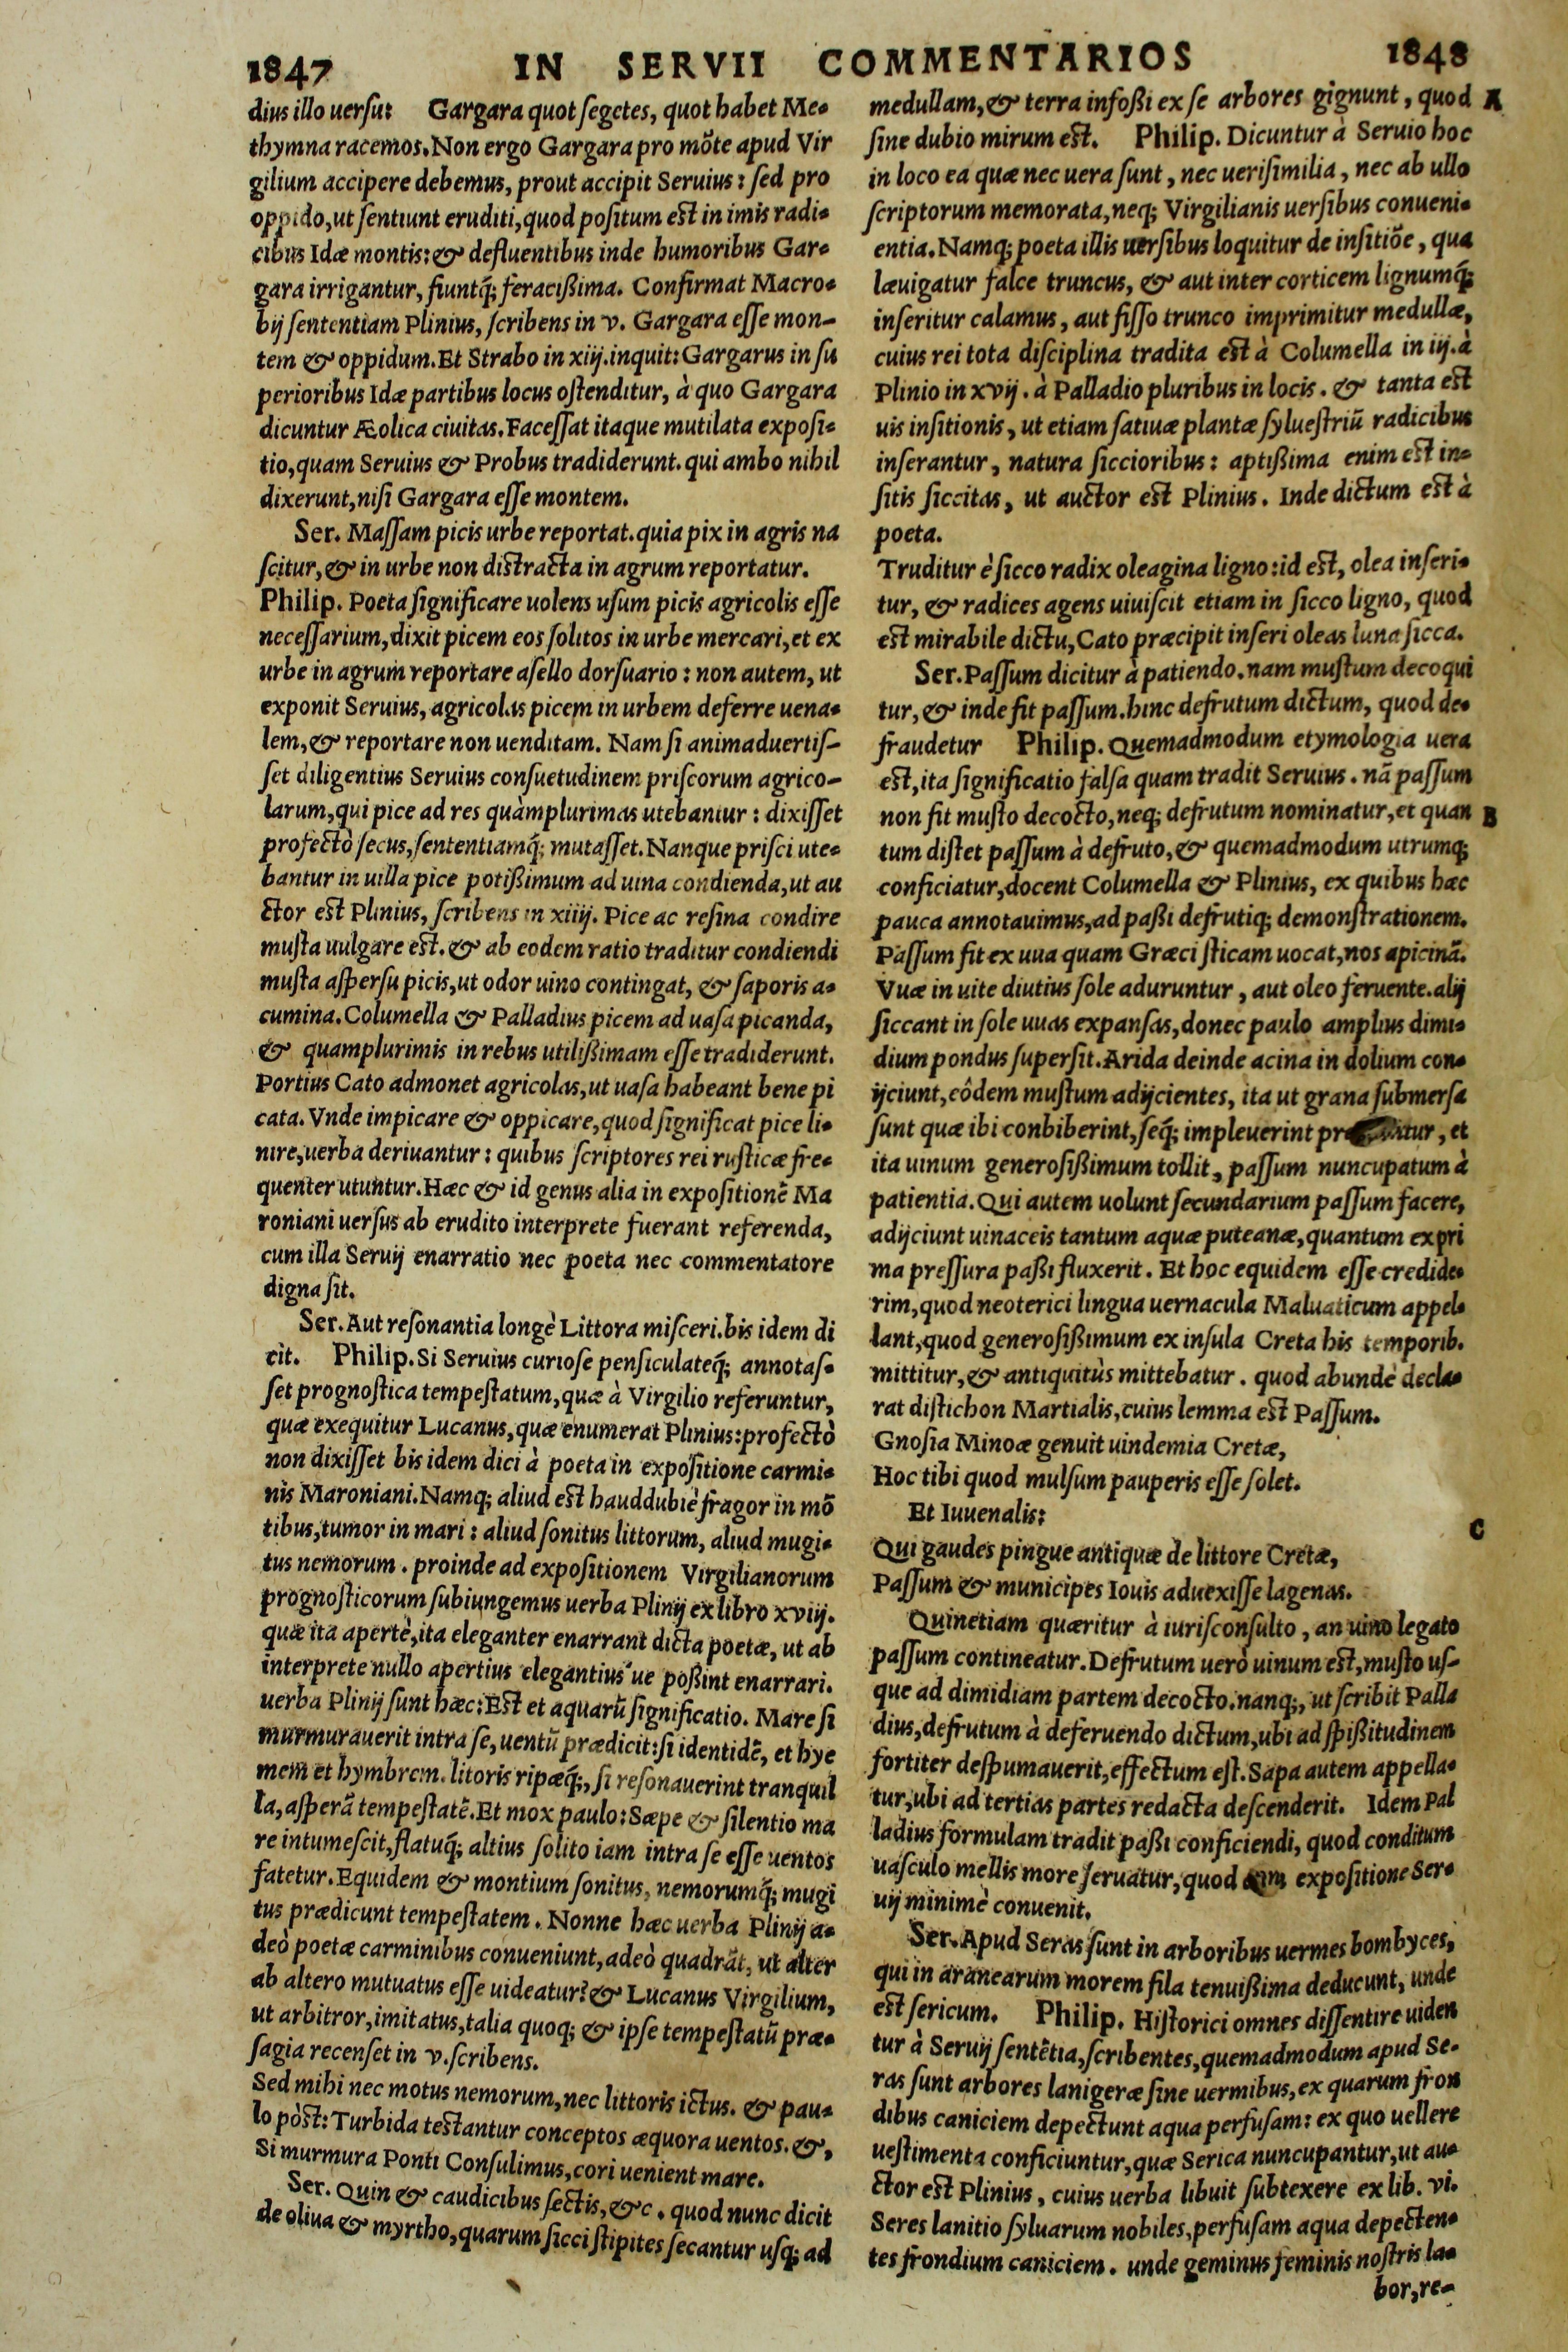 1847 IN SERVII COMMENTARIOS 1848
dius illo uersu: Gargara quot ſegetes, quot habet Me-
thymna racemos. Non ergo Gargara pro mõte apud Vir
gilium accipere debemus, prout accipit Seruius: ſed pro
oppido, ut ſentiunt eruditi, quod poſitum est in imis radi-
cibus Idæ montis: & defluentibus inde humoribus Gar-
gara irrigantur, fiuntq́; feracißima. Confirmat Macro-
bij ſententiam Plinius, ſcribens in v. Gargara eſſe mon-
tem & oppidum. Et Strabo in xiij. inquit: Gargarus in ſu
perioribus Idæ partibus locus oſtenditur, à quo Gargara
dicuntur Æolica ciuitas. Faceſſat itaque mutilata expoſi-
tio, quam Seruius & Probus tradiderunt. qui ambo nihil
dixerunt, niſi Gargara eſſe montem.
Ser. Maſſam picis urbe reportat. quia pix in agris na
ſcitur, & in urbe non distracta in agrum reportatur.
Philip. Poeta ſignificare uolens uſum picis agricolis eſſe
neceſſarium, dixit picem eos ſolitos in urbe mercari, et ex
urbe in agrum reportare aſello dorſuario: non autem, ut
exponit Seruius, agricolas picem in urbem deferre uena-
lem, & reportare non uenditam. Nam ſi animaduertiſ-
ſet diligentius Seruius conſuetudinem priſcorum agrico-
larum, qui pice ad res quàmplurimas utebantur: dixiſſet
profectò ſecus, ſententiamq́; mutaſſet. Nanque priſci ute-
bantur in uilla pice potißimum ad uina condienda, ut au
ctor est Plinius, ſcribens in xiiij. Pice ac reſina condire
muſta uulgare est. & ab eodem ratio traditur condiendi
muſta aſperſu picis, ut odor uino contingat, & ſaporis a-
cumina. Columella & Palladius picem ad uaſa picanda,
& quamplurimis in rebus utilißimam eſſe tradiderunt.
Portius Cato admonet agricolas, ut uaſa habeant bene pi
cata. Vnde impicare & oppicare, quod ſignificat pice li-
nire, uerba deriuantur: quibus ſcriptores rei ruſticæ fre-
quenter utuntur. Hæc & id genus alia in expoſitionẽ Ma
roniani uerſus ab erudito interprete fuerant referenda,
cum illa Seruij enarratio nec poeta nec commentatore
digna ſit.
Ser. Aut reſonantia longè Littora miſceri. bis idem di
cit. Philip. Si Seruius curioſe penſiculateq́; annotaſ-
ſet prognoſtica tempeſtatum, quæ à Virgilio referuntur,
quæ exequitur Lucanus, quæ enumerat Plinius: profectò
non dixiſſet bis idem dici à poeta in expoſitione carmi-
nis Maroniani. Namq; aliud est hauddubiè fragor in mõ
tibus, tumor in mari: aliud ſonitus littorum, aliud mugi-
tus nemorum. proinde ad expoſitionem Virgilianorum
prognoſticorum ſubiungemus uerba Plinij ex libro xviij.
quæ ita apertè, ita eleganter enarrant dicta poetæ, ut ab
interprete nullo apertius elegantius'ue poßint enarrari.
uerba Plinij ſunt hæc: Est et aquarũ ſignificatio. Mare ſi
murmurauerit intra ſe, uentũ prædicit: ſi identidẽ, et hye
mem et hymbrem. litoris ripæq́;, ſi reſonauerint tranquil
la, aſperã tempeſtatẽ. Et mox paulo: Sæpe & ſilentio ma
re intumeſcit, flatuq́; altius ſolito iam intra ſe eſſe uentos
fatetur. Equidem & montium ſonitus, nemorumq́; mugi
tus prædicunt tempeſtatem. Nonne hæc uerba Plinij a-
deò poetæ carminibus conueniunt, adeò quadrãt, ut alter
ab altero mutuatus eſſe uideatur? & Lucanus Virgilium,
ut arbitror, imitatus, talia quoq; & ipſe tempeſtatũ præ-
ſagia recenſet in v. ſcribens.
Sed mihi nec motus nemorum, nec littoris ictus. & pau-
lo pòst: Turbida testantur conceptos æquora uentos. &,
Si murmura Ponti Conſulimus, cori uenient mare.
Ser. Quin & caudicibus ſectis, &c. quod nunc dicit
de oliua & myrtho, quarum ſicci ſtipites ſecantur uſq; ad
medullam, & terra infoßi ex ſe arbores gignunt, quod A
ſine dubio mirum est. Philip. Dicuntur à Seruio hoc
in loco ea quæ nec uera ſunt, nec ueriſimilia, nec ab ullo
ſcriptorum memorata, neq; Virgilianis uerſibus conueni-
entia. Namq; poeta illis uerſibus loquitur de inſitiõe, qua
læuigatur falce truncus, & aut inter corticem lignumq́;
inſeritur calamus, aut fiſſo trunco imprimitur medullæ,
cuius rei tota diſciplina tradita est à Columella in iij. à
Plinio in xvij. à Palladio pluribus in locis. & tanta est
uis inſitionis, ut etiam ſatiuæ plantæ ſylueſtriũ radicibus
inſerantur, natura ſiccioribus: aptißima enim est in-
ſitis ſiccitas, ut auctor est Plinius. Inde dictum est à
poeta.
Truditur è ſicco radix oleagina ligno: id est, olea inſeri-
tur, & radices agens uiuiſcit etiam in ſicco ligno, quod
est mirabile dictu, Cato præcipit inſeri oleas luna ſicca.
Ser. Paſſum dicitur à patiendo. nam muſtum decoqui
tur, & inde fit paſſum. hinc defrutum dictum, quod de-
fraudetur Philip. Quemadmodum etymologia uera
est, ita ſignificatio falſa quam tradit Seruius. nã paſſum
non fit muſto decocto, neq; defrutum nominatur, et quan B
tum diſtet paſſum à defruto, & quemadmodum utrumq;
conficiatur, docent Columella & Plinius, ex quibus hæc
pauca annotauimus, ad paßi defrutiq; demonſtrationem.
Paſſum fit ex uua quam Græci ſticam uocat, nos apicinã.
Vuæ in uite diutius ſole aduruntur, aut oleo feruente. alij
ſiccant in ſole uuas expanſas, donec paulo amplius dimi-
dium pondus ſuperſit. Arida deinde acina in dolium con-
ijciunt, eôdem muſtum adijcientes, ita ut grana ſubmerſa
ſunt quæ ibi conbiberint, ſeq́; impleuerint , et
ita uinum generoſißimum tollit, paſſum nuncupatum à
patientia. Qui autem uolunt ſecundarium paſſum facere,
adijciunt uinaceis tantum aquæ puteanæ, quantum expri
ma preſſura paßi fluxerit. Et hoc equidem eſſe credide-
rim, quod neoterici lingua uernacula Maluaticum appel-
lant, quod generoſißimum ex inſula Creta his temporib.
mittitur, & antiquitùs mittebatur. quod abundè decla-
rat diſtichon Martialis, cuius lemma est Paſſum.
Gnoſia Minoæ genuit uindemia Cretæ,
Hoc tibi quod mulſum pauperis eſſe ſolet.
Et Iuuenalis:
C
Qui gaudes pingue antiquæ de littore Cretæ,
Paſſum & municipes Iouis aduexiſſe lagenas.
Quinetiam quæritur à iuriſconſulto, an uino legato
paſſum contineatur. Defrutum uerò uinum est, muſto uſ-
que ad dimidiam partem decocto. nanq;, ut ſcribit Palla
dius, defrutum à deferuendo dictum, ubi ad ſpißitudinem
fortiter deſpumauerit, effectum eſt. Sapa autem appella-
tur, ubi ad tertias partes redacta deſcenderit. Idem Pal
ladius formulam tradit paßi conficiendi, quod conditum
uaſculo mellis more ſeruatur, quod cum expoſitione Ser-
uij minimè conuenit.
Ser. Apud Seras ſunt in arboribus uermes bombyces,
qui in aranearum morem fila tenuißima deducunt, unde
est ſericum. Philip. Hiſtorici omnes diſſentire uiden
tur à Seruij ſentẽtia, ſcribentes, quemadmodum apud Se-
ras ſunt arbores lanigeræ ſine uermibus, ex quarum fron
dibus caniciem depectunt aqua perfuſam: ex quo uellere
ueſtimenta conficiuntur, quæ Serica nuncupantur, ut au-
ctor est Plinius, cuius uerba libuit ſubtexere ex lib. vi.
Seres lanitio ſyluarum nobiles, perfuſam aqua depecten-
tes frondium caniciem. unde geminus feminis noſtris la-
bor, re-